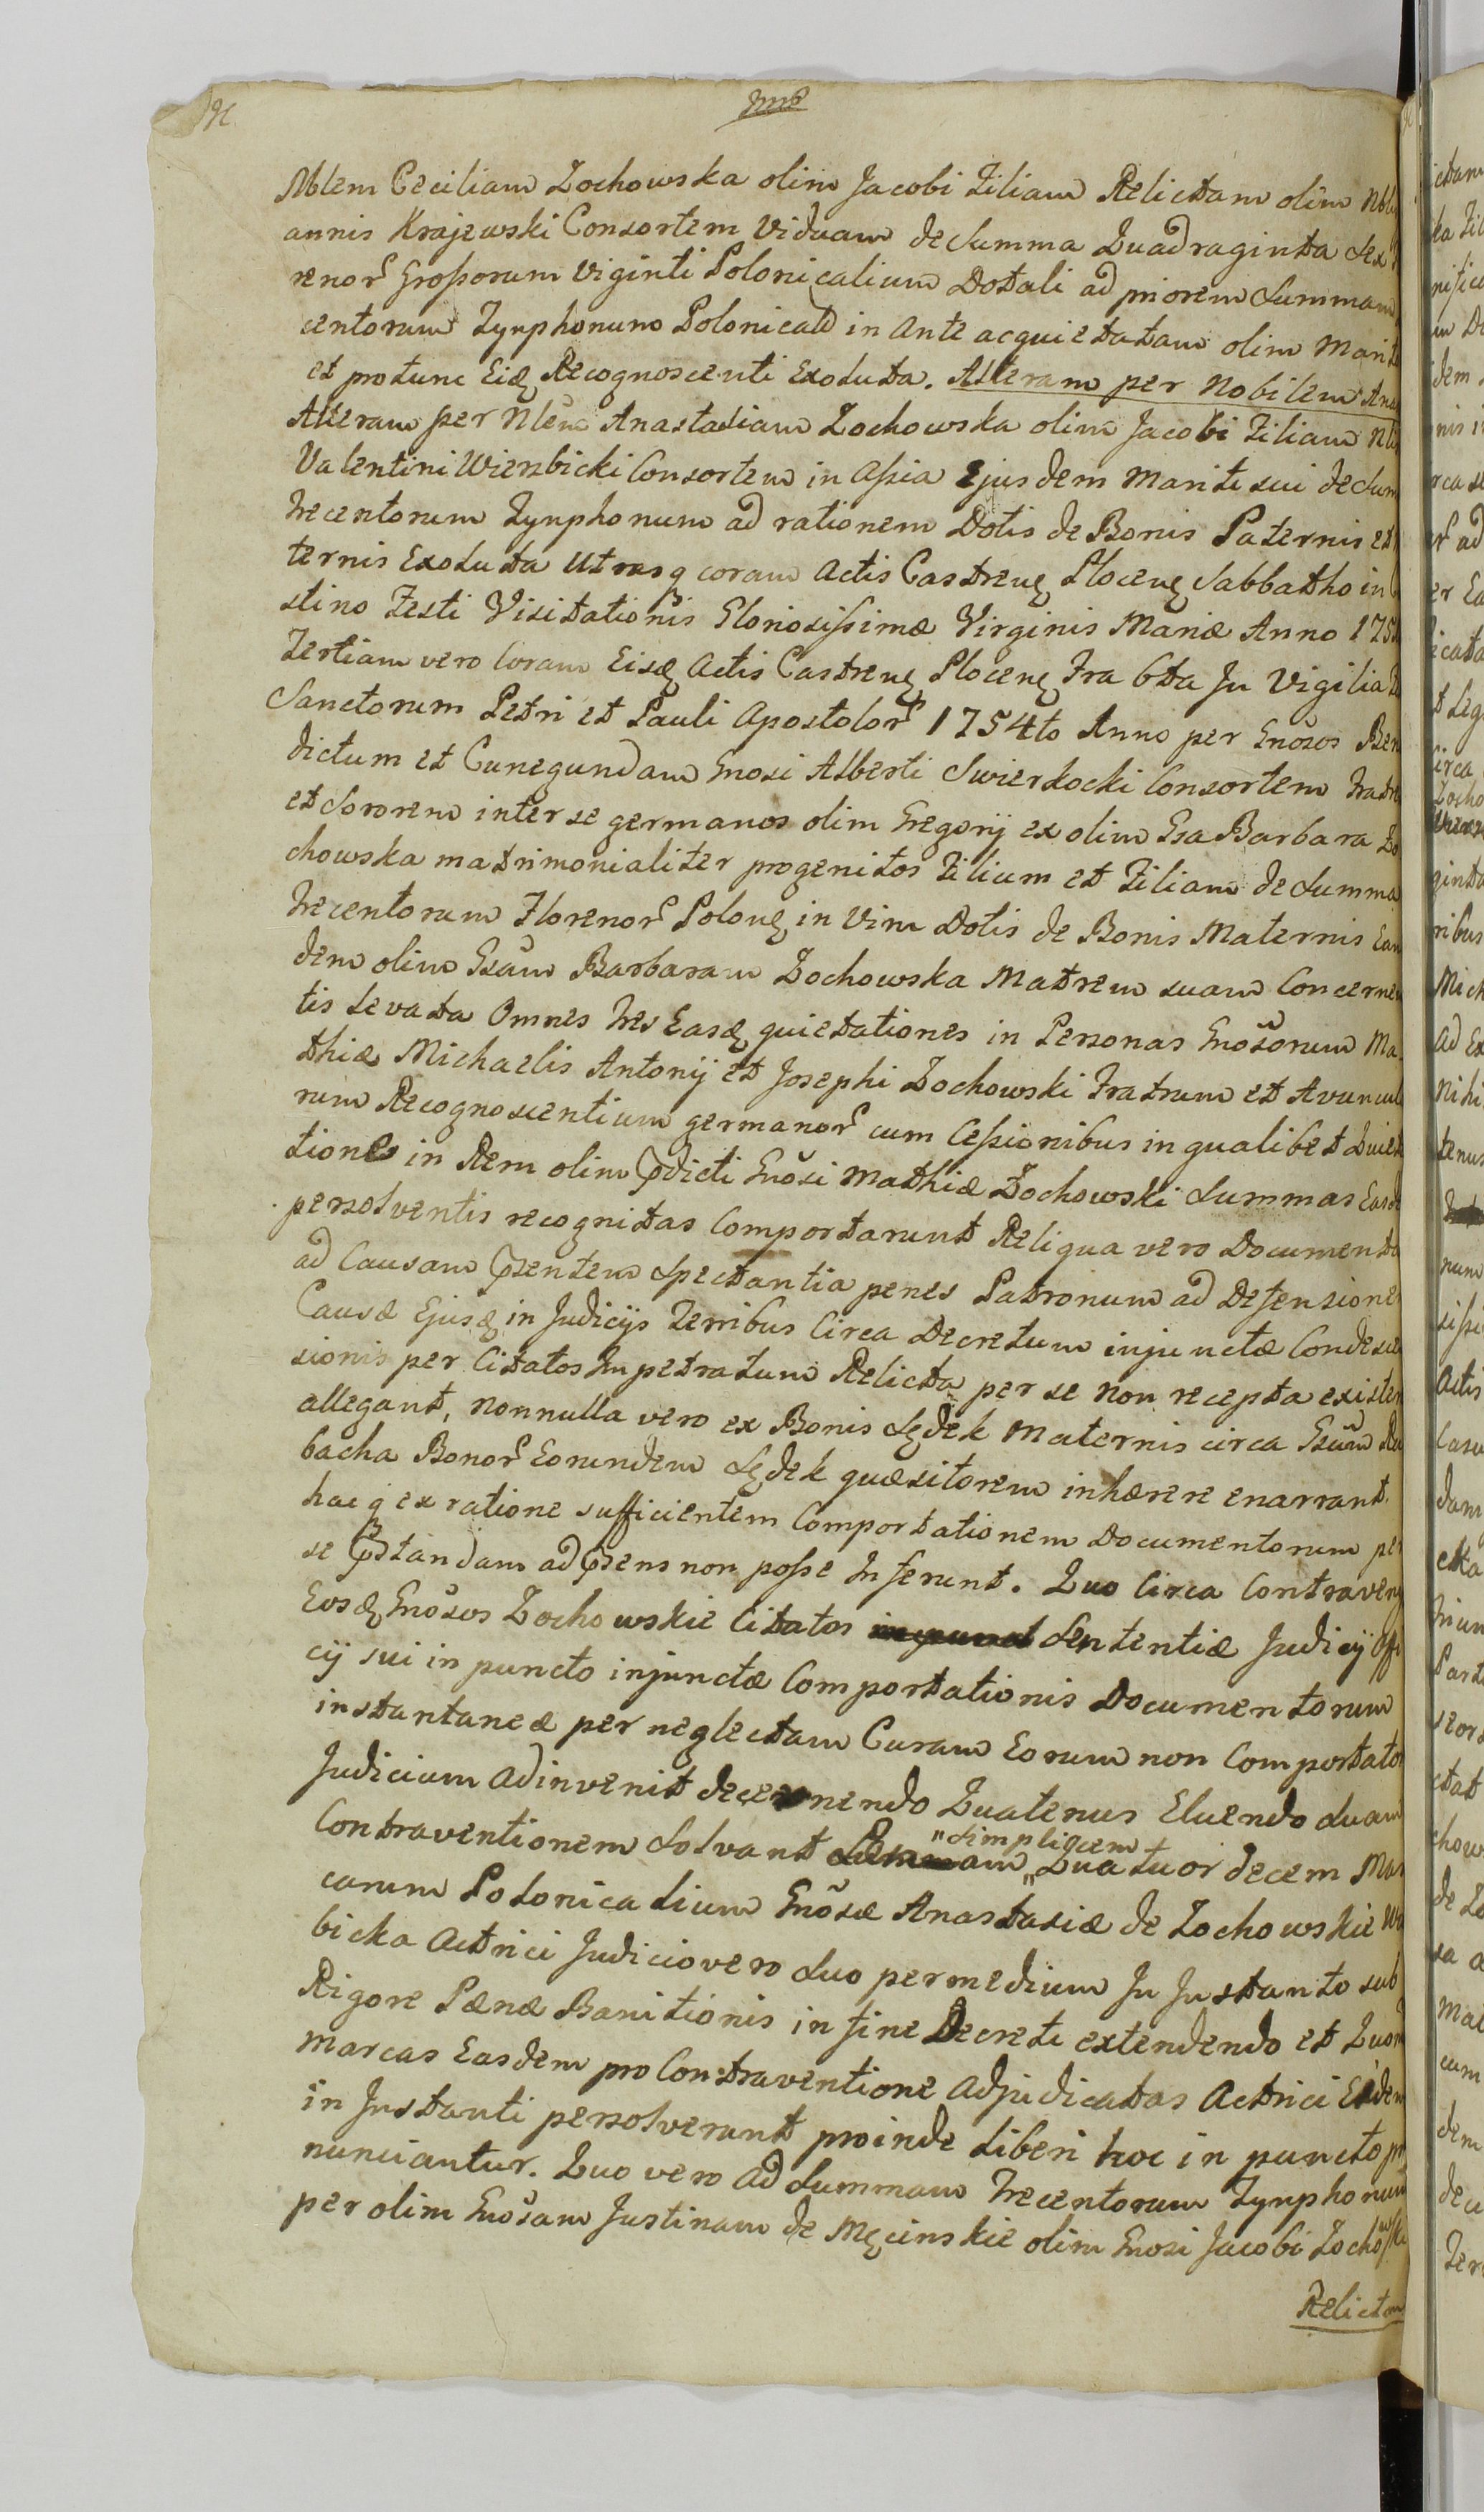 Nblem Ceciliam Zochowska olim Jacobi Filiam Relictam olim Nblis
annis Krajewski Consortem Viduam de Summa Quadraginta Sex
renor Grossorum Viginti Polonicalium Dotali ad priorem Summam
centorum Tynphonum Polonicał in Ante acquietatam olim Marito
et protunc Eidę Recognoscenti Exoluta. Alteram per Nobilem Ana
Alteram per Nlem Anastasiam Zochowska olim Jacobi Filiam Nlis
Valentini Wierzbicki Consortem in Assia Ejusdem Mariti sui de Sum
Trecentorum Tynphonum ad rationem Dotis de Bonis Paternis et
ternis Exoluta Utrasq coram Actis Castrenę Plocenę Sabbatho in
stino Festi Visitationis Gloriosissimæ Virginis Mariæ Anno 175
Tertiam vero Coram Eisdę Actis Castrenę Plocenę Fra 6ta In Vigilia
Sanctorum Petri et Pauli Apostolor 1754to Anno per Gnosos Ben
dictum et Cunegundam Gnosi Alberti Swierdocki Consortem Fratre
et Sororem inter se germanos olim Gregorij ex olim Gsa Barbara Zo
chowska matrimonialiter progenitos Filium et Filiam de Summa
Trecentorum Florenor Polonę in Vim Dotis de Bonis Maternis Ean
dem olim Gsam Barbaram Zochowska Matrem suam Concernen
tis Levata Omnes tres Easdę quietationes in Personas Gnosorum Ma
thiæ Michaelis Antonij et Josephi Zochowski Fratrum et Avuncul
rum Recognoscentium germanor cum Cessionibus in qualibet Quieta
tiones in Rem olim prdicti Gnosi Mathiæ Zochowski Summas Easd
persolventis recognitas Comportarunt Reliqua vero Documenta
ad Causam prsentem Spectantia penes Patronum ad Defensione
Causæ Ejusdę in Judicijs Terribus Circa Decretum injunctæ Condesce
sionis per Citatos Impetratum Relicta per se non recepta existen
allegant, nonnulla vero ex Bonis Lędek Maternis circa Gsum Ra
bacha Bonor Eorundem Lędek quæsitorem inhærere enarrant.
hacq ex ratione sufficientem Comportationem Documentorum per
se prstandam ad prsens non posse Inferunt. Quo Circa Contraveny
Eosdę Gnosos Zochowskie Citatos Sententiæ Judicij Offi
cij sui in puncto injunctæ Comportationis Documentorum
instantaneæ per neglectam Curam Eorum non Comportator
Judicium Adinvenit decernendo Quatenus Eluendo Suam
"simplicem
Contraventionem Solvant " Quatuordecem Mar
carum Polonicalium Gnosæ Anastasiæ de Zochowskie Wi
bicka Actrici Judicio vero Suo per medium In Instanto sub
Rigore Pænæ Banitionis in fine Decreti extendendo et Quon
Marcas Easdem pro Contraventione Adjudicatas Actrici Eidem
in Instanti persolverunt proinde liberi hoc in puncto pro
nunciantur. Quo vero ad Summam Trecentorum Tynphonum
per olim Gnosam Justinam de Męcinskie olim Gnosi Jacobi Zochowski
Relictam